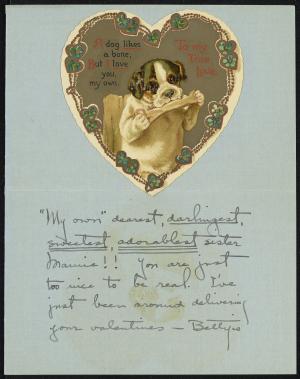 A dog likes
a bone,
But I love
you,
my own.
To my
True
love.
"My own" dearest, darlingest,
sweetest, adorablest sister
Mamie!! You are just
too nice to be real. I've
just been around delivering
your valentines —